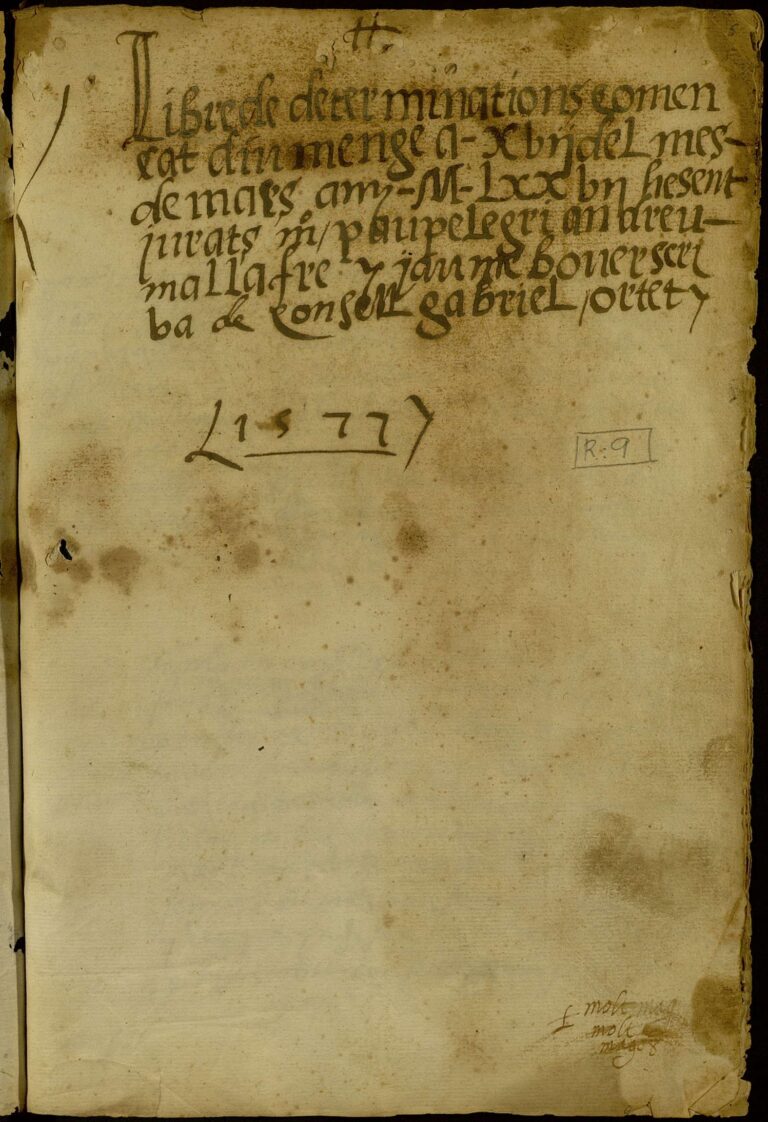 Libre de determinations comen
cat diumenge a - xbij del mes
de mars any - M - Lxxbij hesent
jurats mº / pau pelegri andreu
mallafre y jaume bover scri
ba de consell gabriel / ortet y
1577
R:9
molt mag
molt
mag